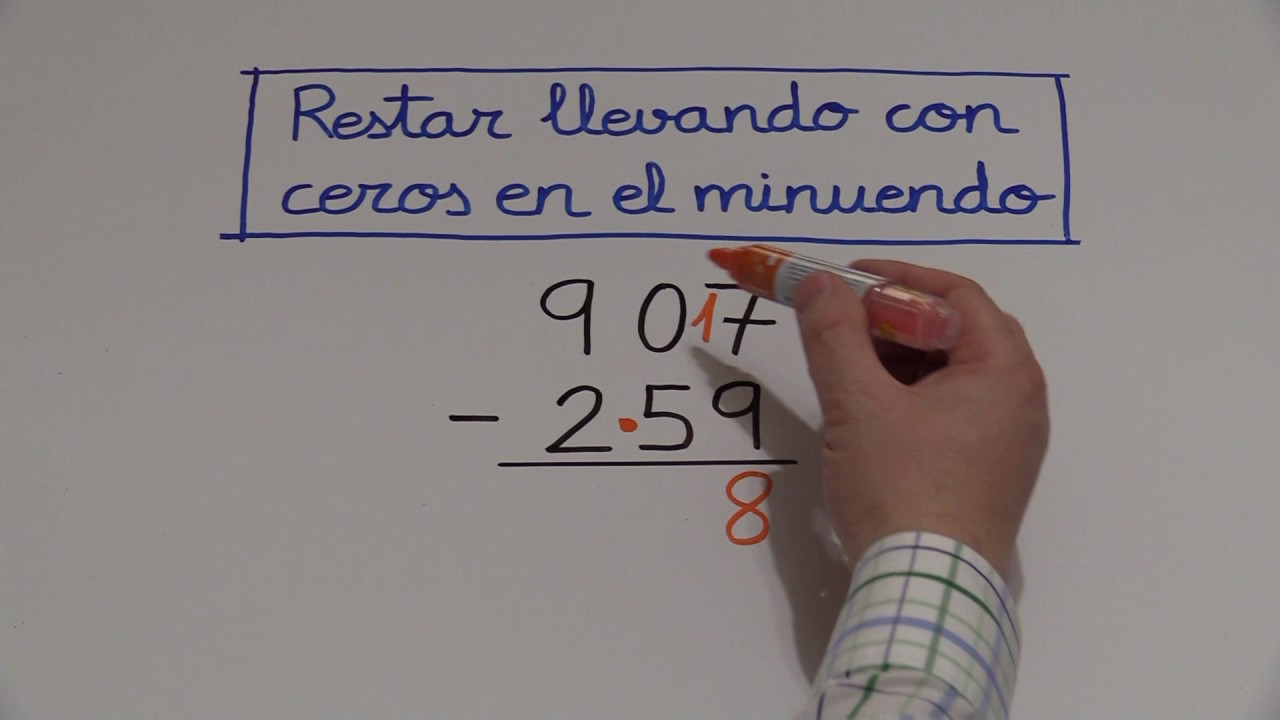 Restar llevando con
ceros en el minuendo
9 0 17
- 2·59
8